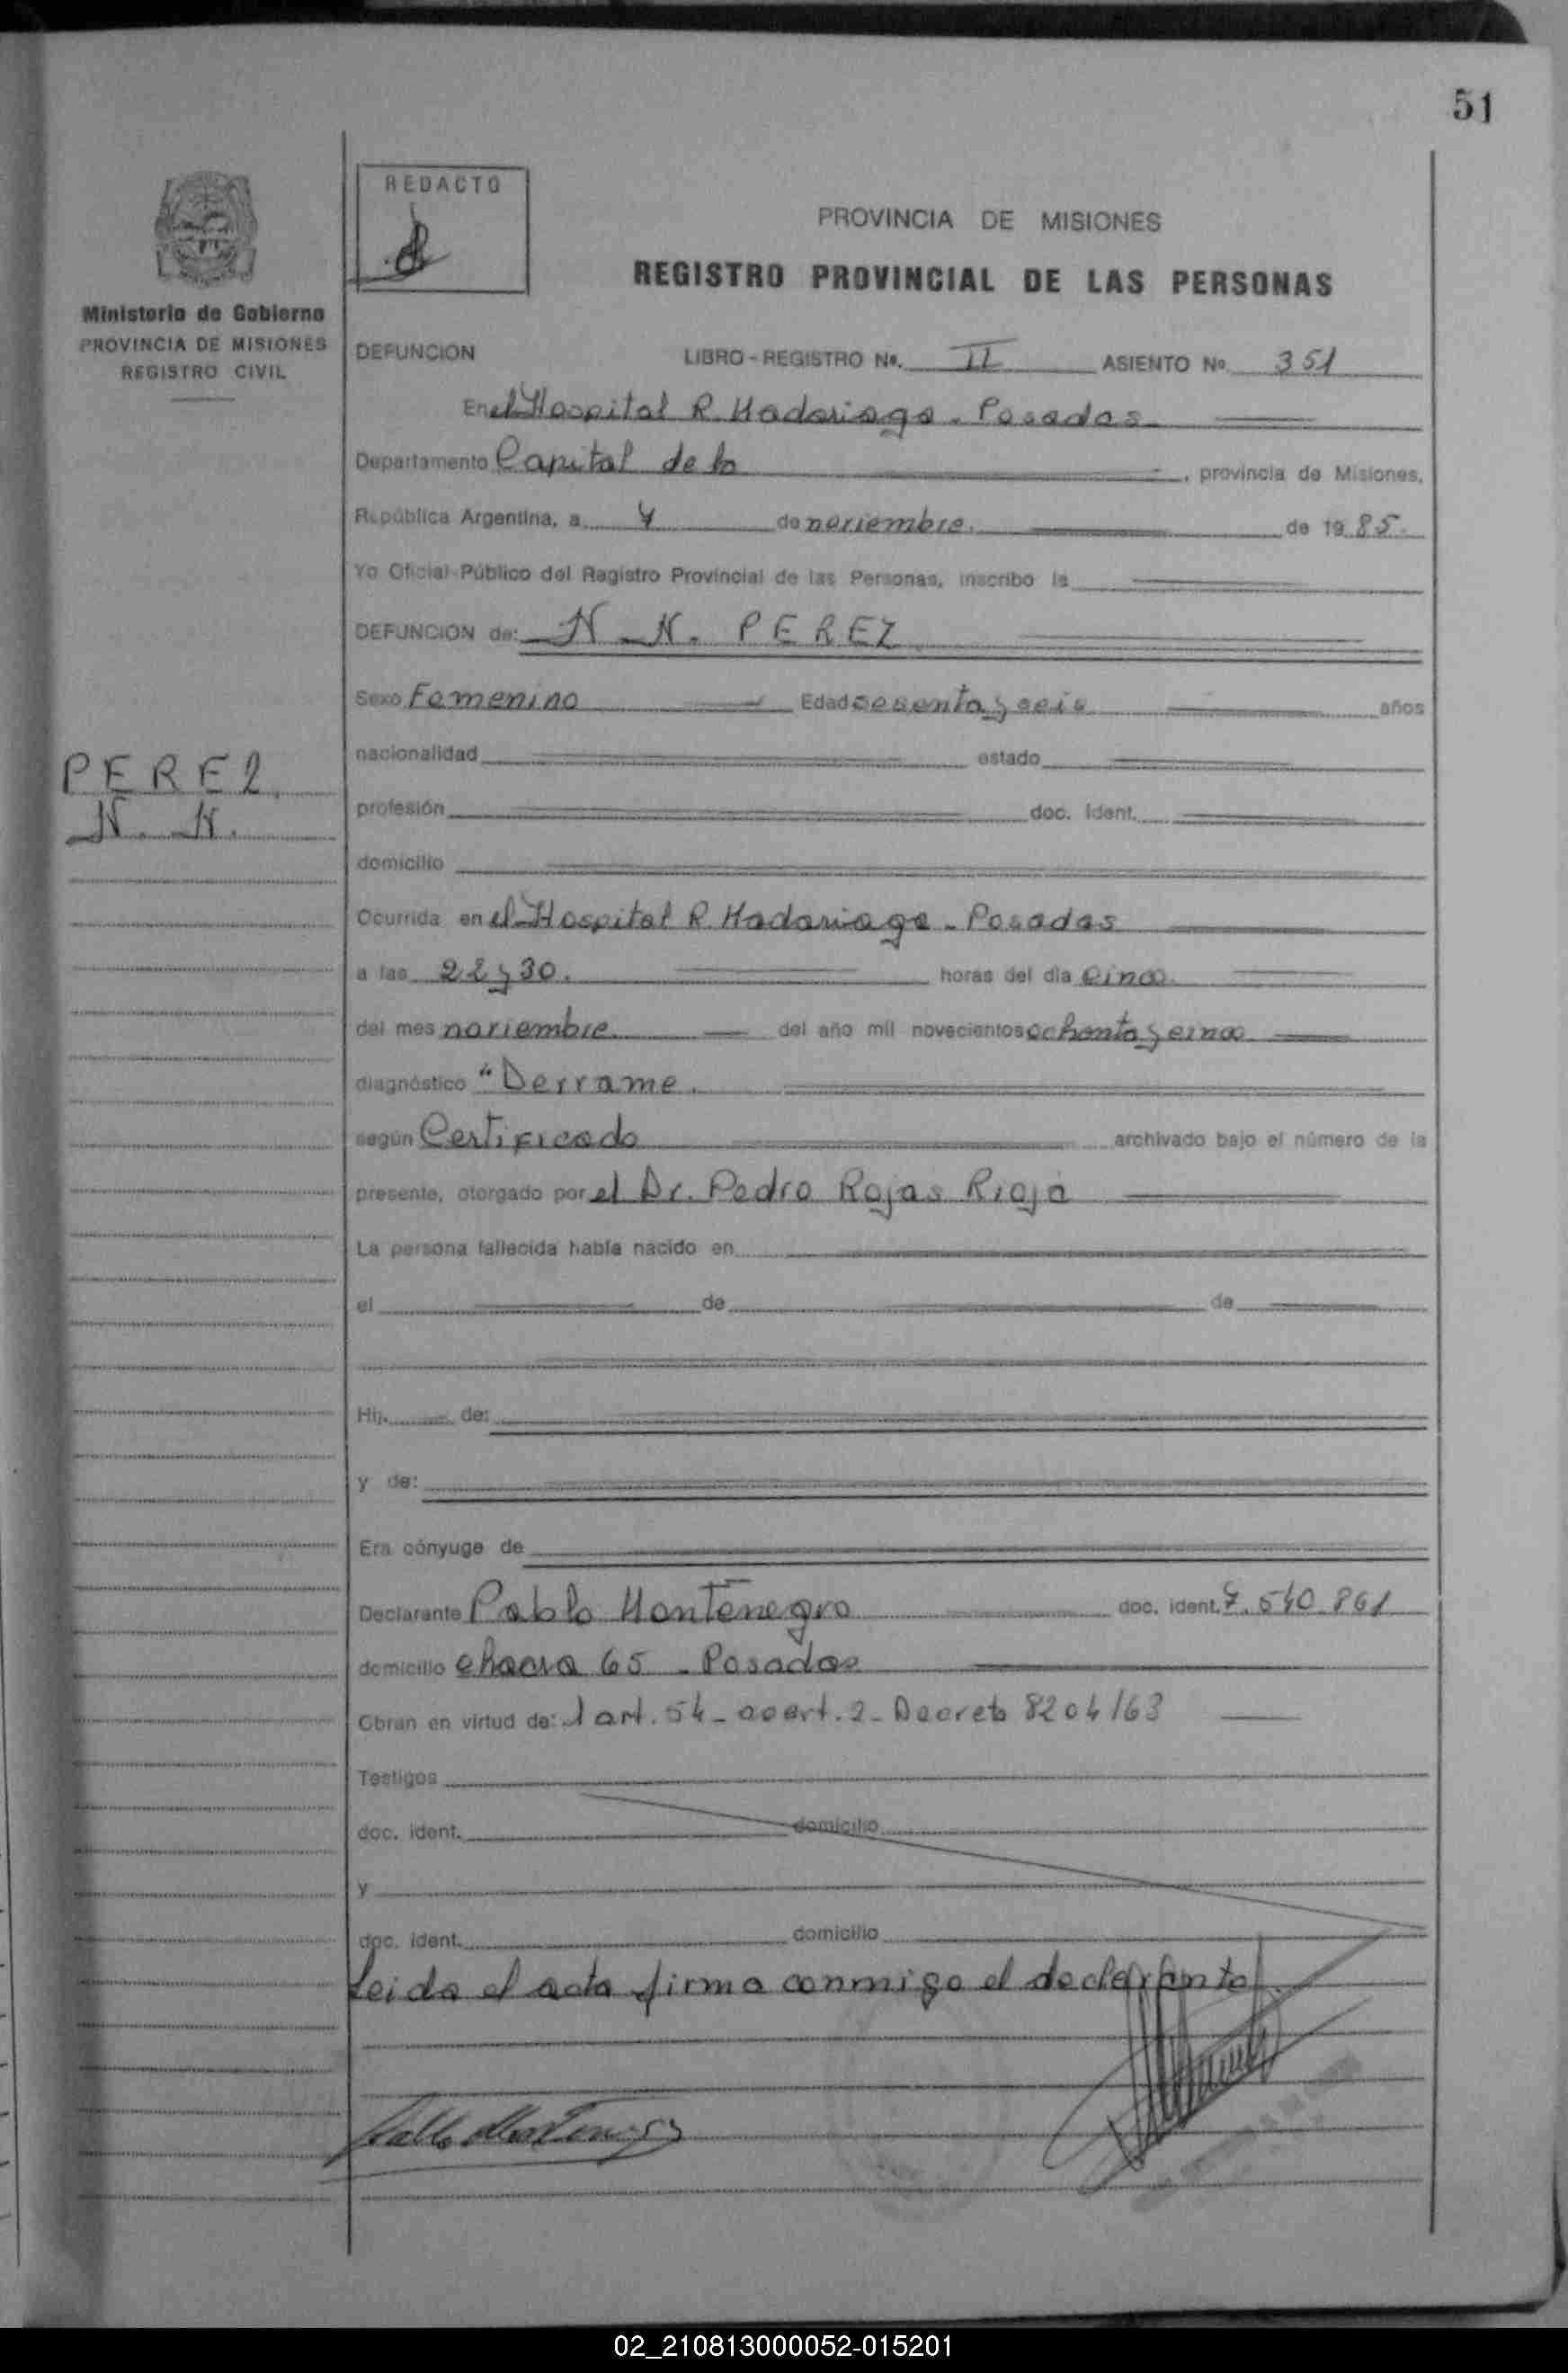 51
REDACTO
PROVINCIA DE MISIONES
REGISTRO PROVINCIAL DE LAS PERSONAS
Ministerio de Gobierno
PROVINCIA DE MISIONES
REGISTRO CIVIL
DEFUNCION LIBRO - REGISTRO Nº. II ASIENTO Nº 351
En el Hospital R. Madariaga - Posadas
Departamento Capital de la , provincia de Misiones,
República Argentina, a 7 de noviembre de 1985.
Yo Oficial Público del Registro Provincial de las Personas, inscribo la
DEFUNCION de: N. N. PEREZ
Sexo Femenino Edad sesenta y seis años
nacionalidad estado
PEREZ
N. N.
profesión doc. ident.
domicilio
Ocurrida en el Hospital R. Madariaga - Posadas
a las 22 y 30. horas del día cinco
del mes noviembre del año mil novecientos ochenta y cinco
diagnóstico "Derrame.
según Certificado archivado bajo el número de la
presente, otorgado por el Dr. Pedro Rojas Rioja
La persona fallecida había nacido en
el de de
Hij. de:
y de:
Era cónyuge de
Declarante Pablo Montenegro doc. ident. 7.540.861
domicilio chacra 65 - Posadas
Obran en virtud de: 1 art. 54 - art. 2 - Decreto 8204/63
Testigos
doc. ident. domicilio
y
doc. ident. domicilio
Leida el acta firma conmigo el declarante
02_210813000052-015201